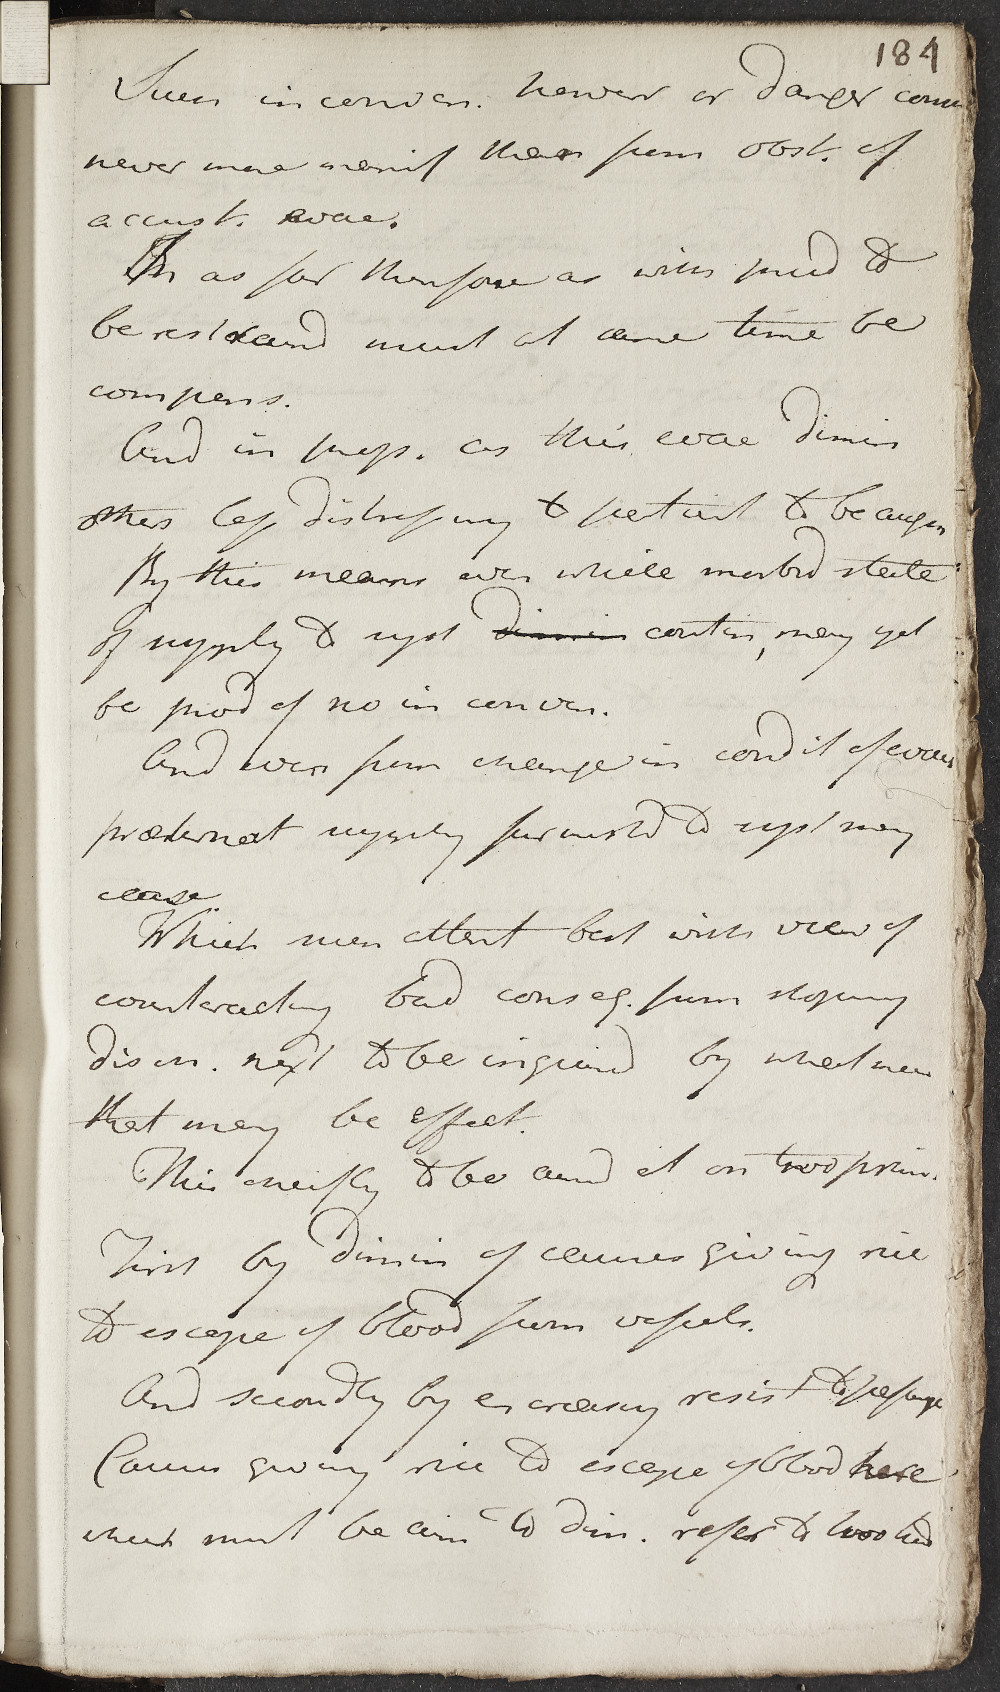 184
Such inconven. however or danger comm
never more manif than from obst. of
accust. evac.
In as far therefore as with prud to
be restraind must at same time be
compens.
And in prop. as this evac dimin
others less distressing to patient to be augm
By this means even while morbid state
of supply to syst dimin contin, may yet
be prod of no inconven.
And even from change in condit of evac
præternat supply furnishd to syst may
cease
Which mean attent best with view of
counteracting bad conseq. from stopping
disch. next to be inquird by what mean
that may be effect.
This chiefly to be aimd at on two prin.
First by dimin of causes giving rise
to escape of blood from vessels.
And secondly by encreasing resist to passage
Causes giving rise to escape of blood here
which must be aim to dim. refer to two hd